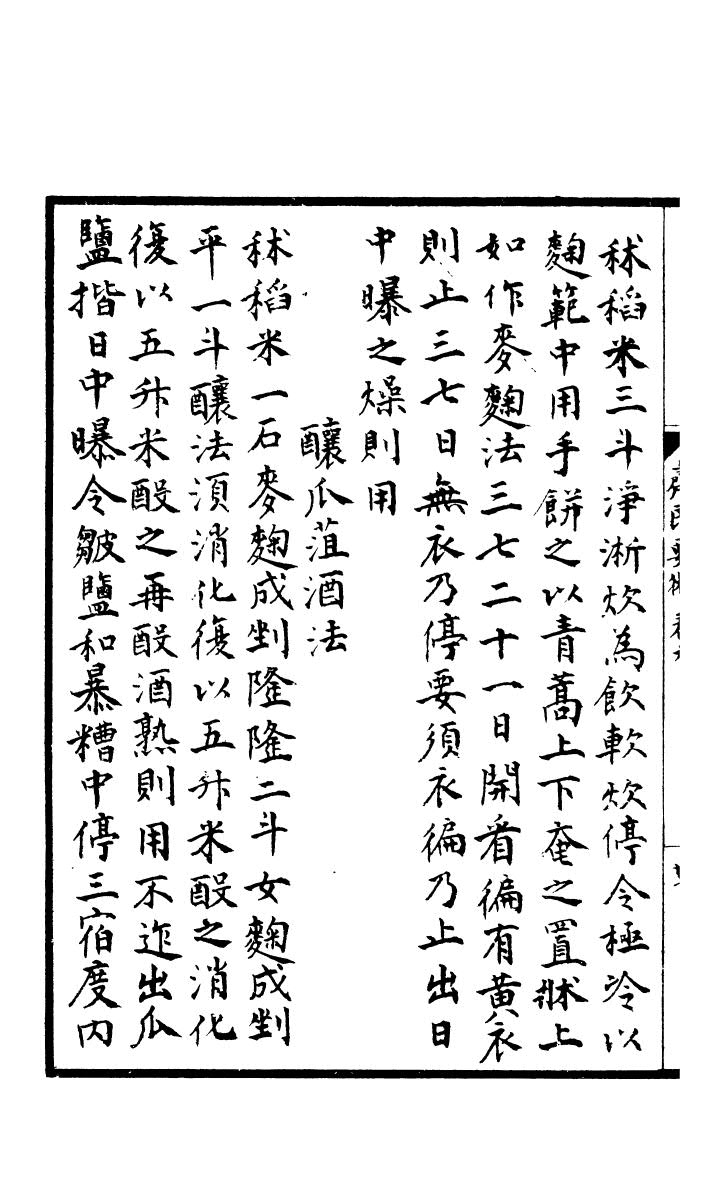 秫稻米三斗淨淅炊為飲軟炊停令極冷以
麴範中用手餅之以青蒿上下奄之置牀上
如作麥麴法三七二十一日開看徧有黃衣
則止三七日無衣乃停要須衣徧乃止出日
中曝之燥則用
釀瓜菹酒法
秫稻米一石麥麴成剉隆隆二斗女麴成剉
平一斗釀法須消化復以五升米酘之消化
復以五升米酘之再酘酒熟則用不迮出瓜
鹽揩日中曝令皺鹽和暴糟中停三宿度内